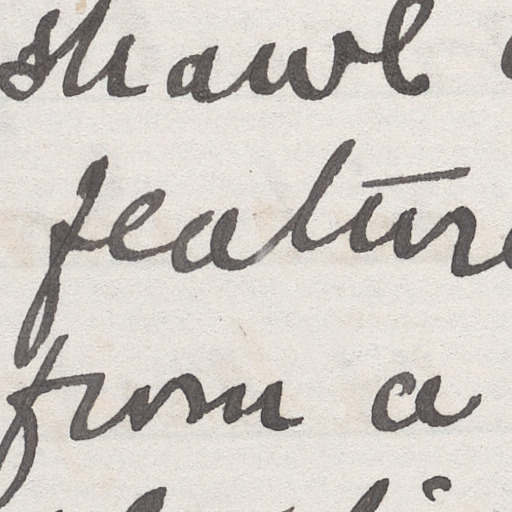 shawl
feature
from a